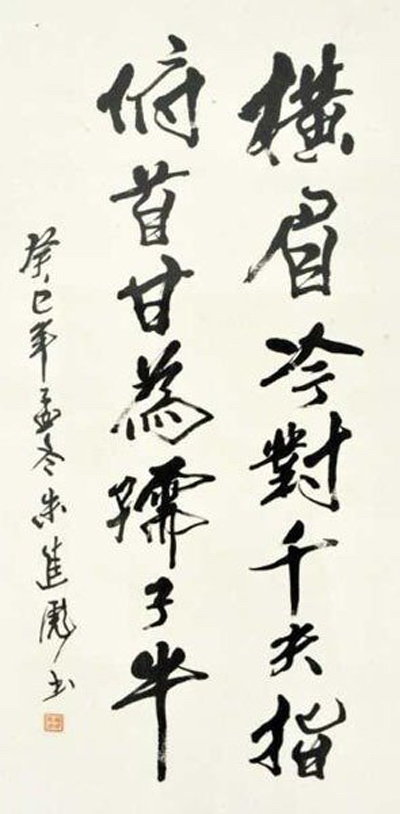 橫眉冷對千夫指
俯首甘為孺子牛
癸巳年孟冬朱進彪書